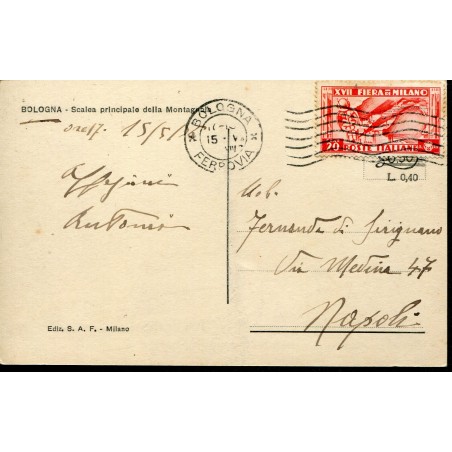 BOLOGNA - Scalea principale della Montagnola
15/5/
Antonio
BOLOGNA
15 - V
FERROVIA
XVII FIERA DI MILANO
20 POSTE ITALIANE
L. 0,40
Nob.
Fernanda di Sirignano
Via Medina 47
Napoli
Ediz. S. A. F. - Milano